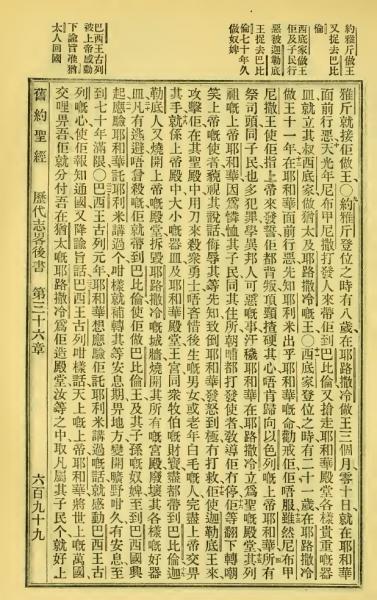 約雅斤做王
又捉去巴比
倫
西底家做王
佢及子民行
惡被迦勒底
王捉去巴比
倫七十年久
做奴婢
巴西王古列
被上帝感動
下諭旨准猶
太人回國
雅斤就接佢做王○約雅斤登位之時有八歲在耶路撒冷做王三個月零十日就在耶和華
面前行惡天光年尼布甲尼撒打發人來帶佢到巴比倫又搶走耶和華殿堂各樣貴重嘅器
皿就立其叔西底家做猶太及耶路撒冷嘅王○西底家登位之時有二十一歲在耶路撒冷
做王十一年在耶和華面前行惡先知耶利米出乎耶和華嘅命勸戒佢佢唔服雖然尼布甲
尼撒王使佢指上帝來發誓佢都背叛項頸撐硬其心唔肯歸向以色列嘅上帝耶和華所有
祭司頭同子民也多犯罪學異邦人可惡嘅事汙穢耶和華在耶路撒冷立爲聖嘅殿堂其列
祖嘅上帝耶和華因爲憐恤其子民同其住所朝晡都打發使者教導佢冇停佢等翻下轉嘲
笑上帝嘅使者藐視其說話侮辱其等先知致到耶和華發怒到極冇打救佢使迦勒底王來
攻擊佢在其聖殿中用刀來殺衆勇士唔吝惜後生嘅男女或老年白毛嘅人完盡上帝交畀
其手就係上帝殿中大小嘅器皿及耶和華殿堂王宮同衆牧伯嘅財寶盡都帶到巴比倫迦
勒底人又燒開上帝嘅殿堂拆毀耶路撒冷嘅城牆燒開其所有嘅宮殿廢壞其各樣嘅好器
皿凡有逃避唔曾殺嘅佢就帶到巴比倫使佢做巴比倫王及其子孫嘅奴婢至到巴西國興
起應驗耶和華託耶利米講過個咁樣就補轉其等安息期畀地方變開曠野咁久有安息至
到七十年滿限○巴西王古列元年耶和華想應驗佢託耶利米講過嘅話就感動巴西王古
列嘅心使佢報知通國又降諭旨話巴西王古列咁樣話天上嘅上帝耶和華將世上嘅萬國
交哩畀吾佢就分付吾在猶太嘅耶路撒冷爲佢造殿堂汝等之中取凡屬其子民个就好上
舊約聖經 歷代志畧後書 第三十六章 六百九十九